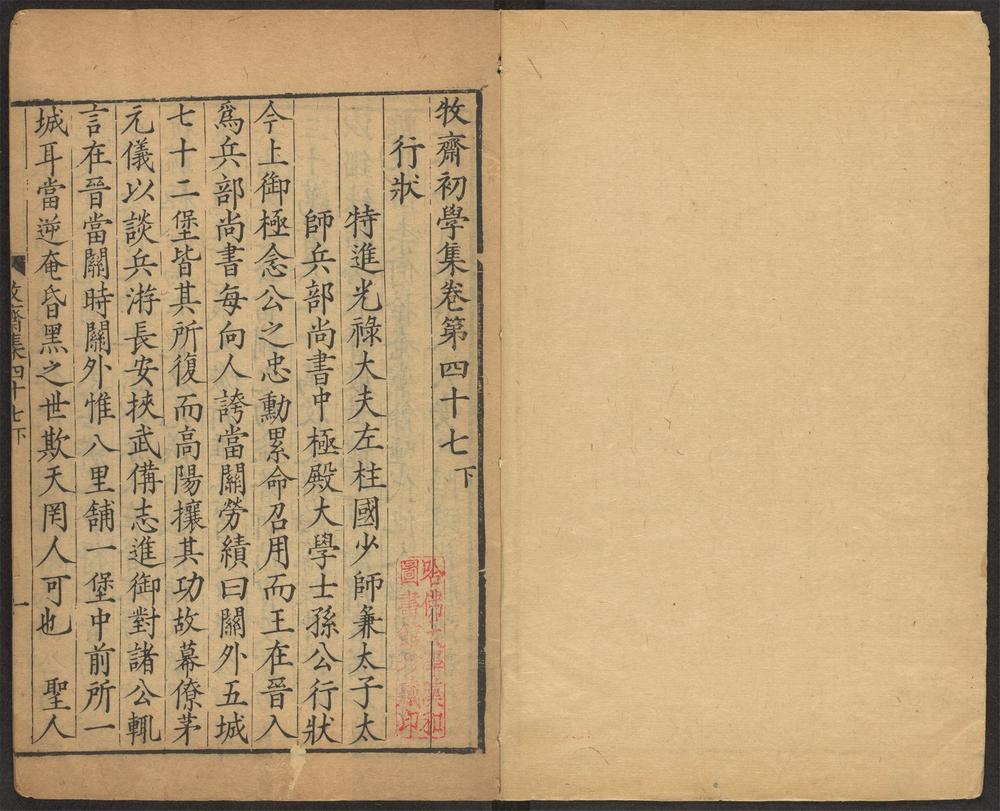 牧齋初學集卷第四十七下
行狀
特進光祿大夫左柱國少師兼太子太
師兵部尚書中極殿大學士孫公行狀
今上御極念公之忠勳累命召用而王在晉入
爲兵部尚書每向人誇當關勞績曰關外五城
七十二堡皆其所復而高陽攘其功故幕僚茅
元儀以談兵游長安挾武備志進御對諸公輒
言在晉當關時關外惟八里舖一堡中前所一
城耳當逆奄昏黑之世欺天罔人可也 聖人
牧齋集四十七下
一
哈佛大學漢和
圖書館珍藏印